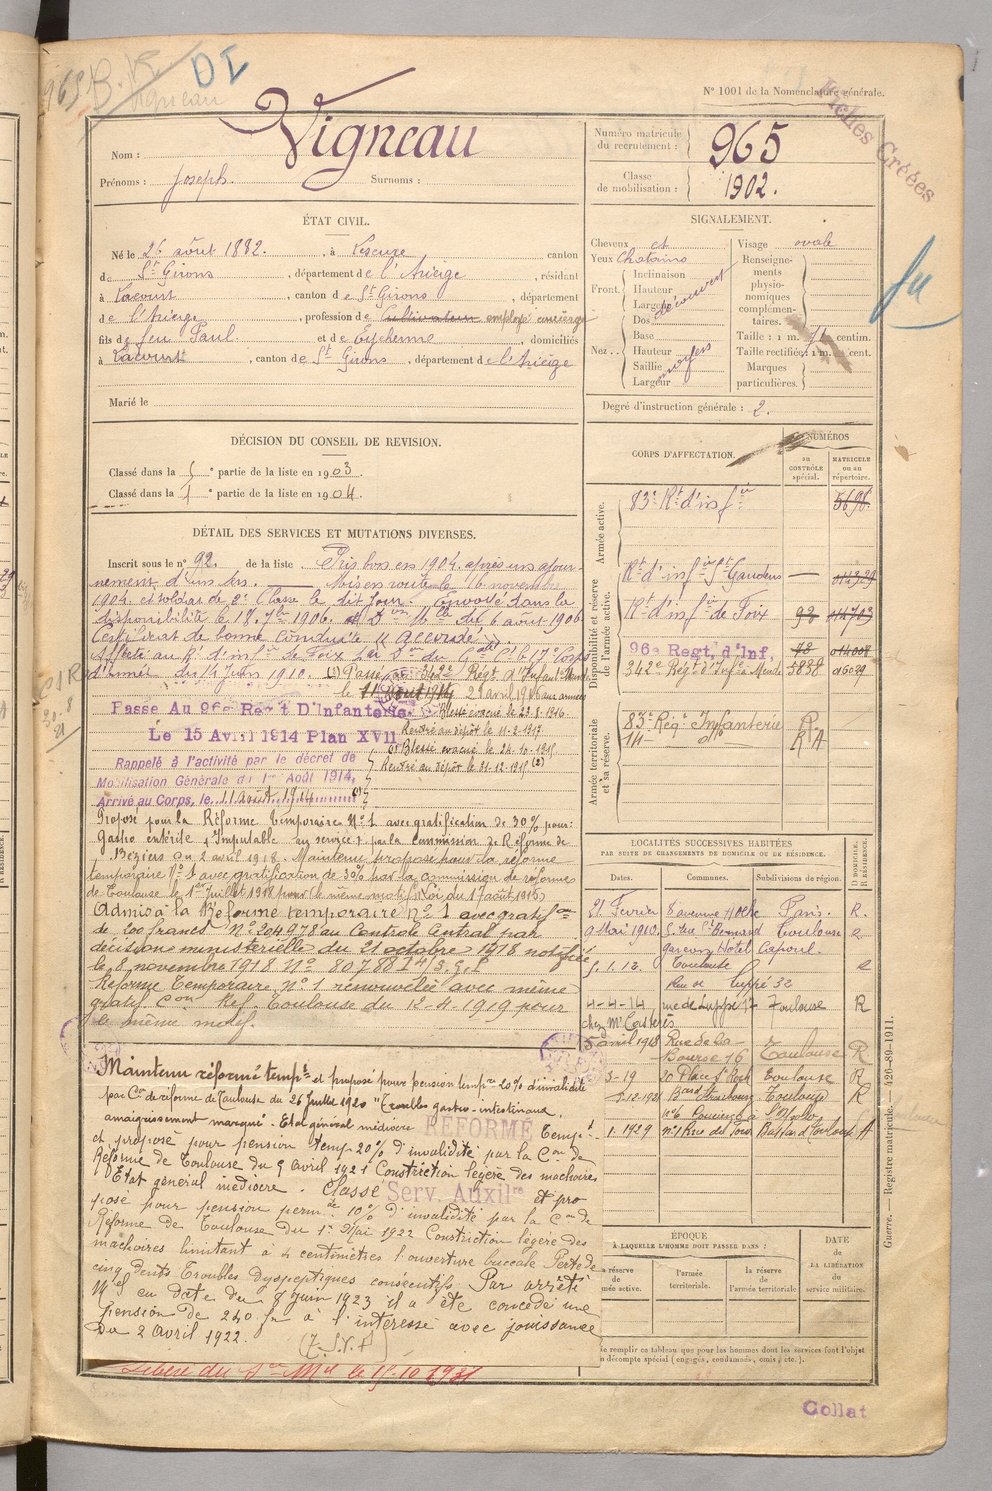 965
DI
Vigneau
N° 1001 de la Nomenclature générale.
Fiches Créées
Nom : Vigneau
Prénoms : Joseph. Surnoms :
Numéro matricule du recrutement : 965
Classe de mobilisation : 1902.
ÉTAT CIVIL.
Né le 26 août 1882. , à Lescure canton
de St Girons , département de l'Ariège , résidant
à Lacourt , canton de St Girons , département
de l'Ariège , profession de Cultivateur employé
fils de feu Paul et de Eychenne , domiciliés
à Lacourt , canton de St Girons , département de l'Ariège
Marié le
SIGNALEMENT.
Cheveux et
Yeux Chatains
Front. Inclinaison
Hauteur
Largeur
découvert
Nez. Dos
Base
Hauteur
Saillie
Largeur
moyens
Visage ovale
Renseignements physionomiques complémentaires.
Taille : 1 m. 71 centim.
Taille rectifiée : 1 m. cent.
Marques particulières.
Degré d'instruction générale : 2.
DÉCISION DU CONSEIL DE REVISION.
Classé dans la 5 e partie de la liste en 1903.
Classé dans la 1 e partie de la liste en 1904.
CORPS D'AFFECTATION.
NUMÉROS
au CONTRÔLE spécial.
MATRICULE ou au répertoire.
Armée active.
83e Rt d'infie 5696
Disponibilité et réserve de l'armée active.
Rt d'infie St Gaudens — 014329
Rt d'infie de Foix 92 014703
96e Regt, d'Inf, 48 014008
342e Régt d'Infie Mende 5838 06039
Armée territoriale et sa réserve.
83e Régt Infanterie
DÉTAIL DES SERVICES ET MUTATIONS DIVERSES.
Inscrit sous le n° 92. de la liste . Pris bon en 1904, après un ajour-
nement d'un an. — Mis en route le 16 novembre
1904, et soldat de 2e Classe le dit jour. Envoyé dans la
disponibilité le 18. 7bre 1906. du 6 août 1906
Certificat de bonne conduite "accordé".
Affecté au Rt d'infie de Foix du 17e Corps
d'Armée du 14 Juin 1910. (1) Passé au 342e Régt d'Infant Mende
le 11 Août 1914 21 avril 1916 aux armées
Passé Au 96e Regt D'Infanterie.
Le 15 Avril 1914 Plan XVII
Blessé évacué le 23-8-1916.
Rentré au dépôt le 11-2-1917
Blessé évacué le 24-10-1915
Rentré au dépôt le 21-12-1915 (2)
Rappelé à l'activité par le décret de
Mobilisation Générale du 1er Août 1914,
Arrivé au Corps, le 11 août 1914
Proposé pour la Réforme temporaire N° 1 avec gratification de 30% pour:
Gastro entérite, Imputable au service, par la Commission de Réforme de
Béziers du 2 août 1918. Maintenu proposé pour la réforme
temporaire N° 1 avec gratification de 30% par la commission de réforme
de Toulouse le 1er Juillet 1918 pour le même motif (Loi du 1 août 1915)
Admis à la Réforme temporaire N° 1 avec gratifion
de 200 francs N° 204.978 au Contrôle Central par
décision ministérielle du 21 octobre 1918 notifiée
le 8 novembre 1918 N° 80788
Réforme Temporaire N° 1 renouvelée avec même
gratifcon Réf. Toulouse du 12-4-1919 pour
le même motif.
Maintenu réformé tempre et proposé pour pension tempre 20% d'invalidité
par Con de réforme de Toulouse du 26 Juillet 1920 "Troubles gastro-intestinaux,
amaigrissement marqué". Etat général médiocre RÉFORMÉ Tempre
et proposé pour pension temp. 20% d'invalidité par la Con de
Réforme de Toulouse du 9 avril 1921 Constriction légère des machoires
Etat général médiocre. Classé Serv. Auxilre et pro
posé pour pension permte 10% d'invalidité par la Con de
Réforme de Toulouse du 1er Mai 1922 Constriction légère des
machoires limitant à 4 centimètres l'ouverture buccale Perte de
cinq dents Troubles dyspeptiques consécutifs. Par arrêté
Mel en date du 8 juin 1923 il a été concédé une
pension de 240 fr à l'intéressé avec jouissance
du 2 avril 1922.
Libéré du Sce Mre le 15-10-1931
LOCALITÉS SUCCESSIVES HABITÉES
PAR SUITE DE CHANGEMENTS DE DOMICILE OU DE RÉSIDENCE.
Dates. Communes. Subdivisions de région. D DOMICILE. R RÉSIDENCE.
21. Février 8 avenue Hoche Paris. R.
9 Mai 1910. 5, rue St Bernard Toulouse R
garçon Hôtel Capoul.
5.1.12. Toulouse R
Rue de Luppé 32
4-4-14 rue de Luppé 17 Toulouse R
chez Mr Casterès
5 avril 1918 Rue de la Bourse 16 Toulouse R
3-19 20 Place St Roch Toulouse R
8.12.1921 Bard Strasbourg Toulouse R
.1.1929 n°1 Rue des Tour Toulouse A
ÉPOQUE
À LAQUELLE L'HOMME DOIT PASSER DANS :
la réserve de l'armée active.
l'armée territoriale.
la réserve de l'armée territoriale
DATE de LA LIBÉRATION du service militaire.
Ne remplir ce tableau que pour les hommes dont les services font l'objet
d'un décompte spécial (engagés, condamnés, omis, etc.).
Guerre. — Registre matricule. — 426-89-1911.
Collat